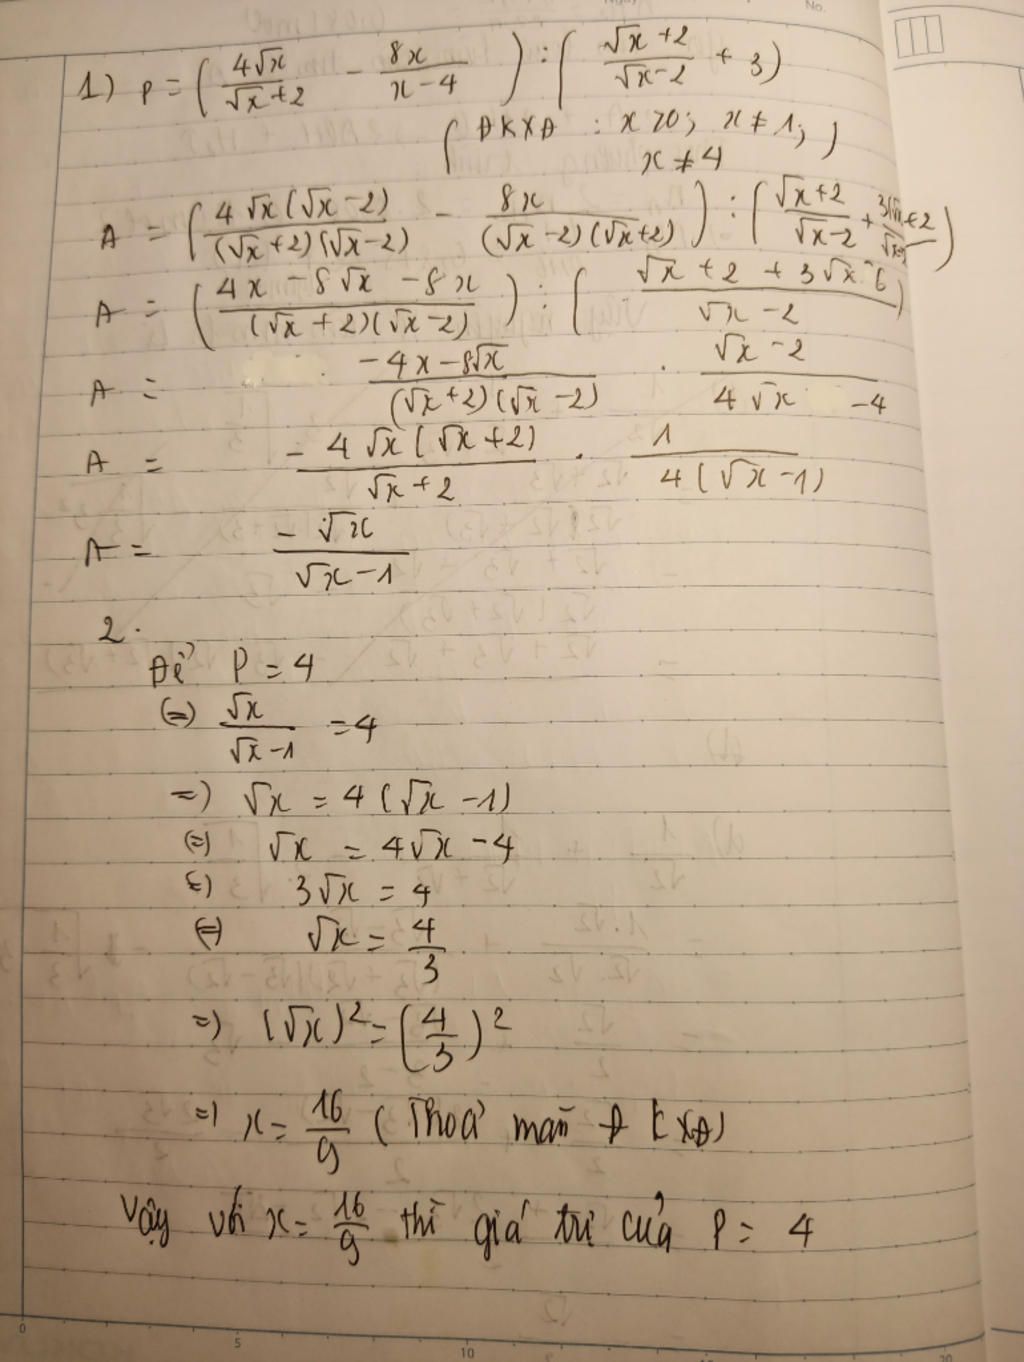 No.
1) P = ( 4√x / (√x+2) - 8x / (x-4) ) : ( (√x+2) / (√x-2) + 3 )
( ĐKXĐ : x > 0; x ≠ 1; )
x ≠ 4
A = ( 4√x(√x-2) / (√x+2)(√x-2) - 8x / (√x-2)(√x+2) ) : ( (√x+2) / (√x-2) +
A = ( (4x - 8√x - 8x) / (√x+2)(√x-2) ) : ( (√x + 2 + 3√x - 6) / (√x-2) )
A = (-4x - 8√x) / (√x+2)(√x-2) . (√x-2) / (4√x - 4)
A = -4√x(√x+2) / (√x+2) . 1 / 4(√x-1)
A = -√x / (√x-1)
2.
Để P = 4
(=) √x / (√x-1) = 4
=) √x = 4(√x-1)
(=) √x = 4√x - 4
(=) 3√x = 4
(=) √x = 4/3
=) (√x)² = (4/3)²
=) x = 16/9 (Thoả mãn ĐKXĐ)
Vậy với x = 16/9 thì giá trị của P = 4
0 5 10 20